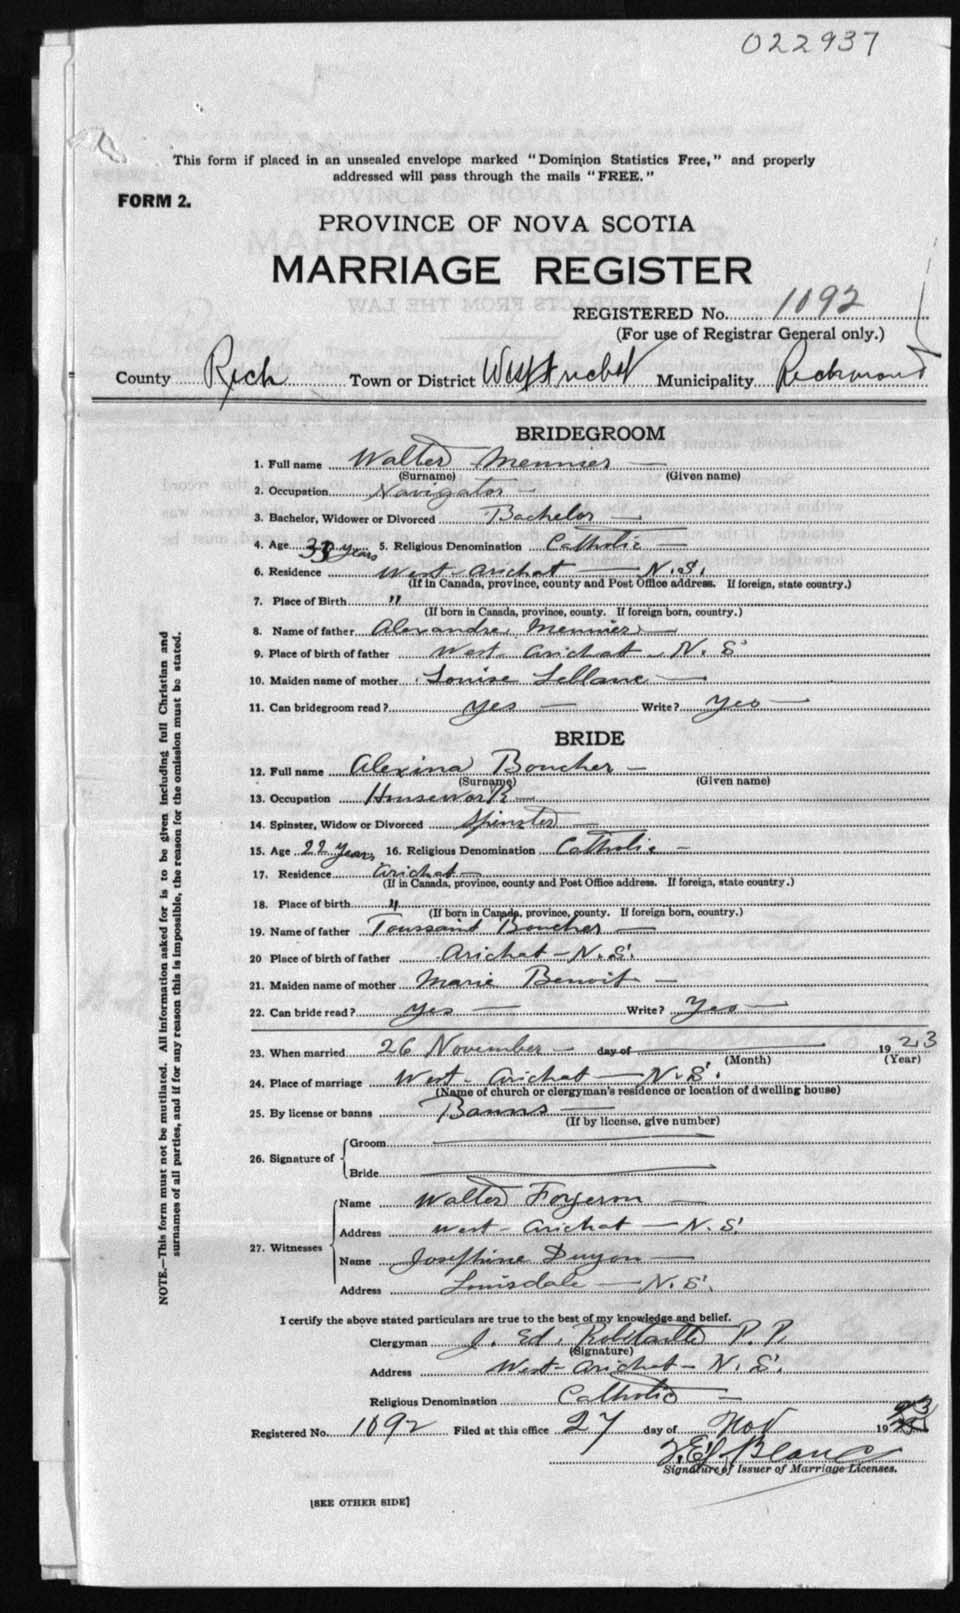 022937
This form if placed in an unsealed envelope marked "Dominion Statistics Free," and properly
addressed will pass through the mails "FREE."
FORM 2.
PROVINCE OF NOVA SCOTIA
MARRIAGE REGISTER
REGISTERED No. 1092
(For use of Registrar General only.)
County Rich Town or District West Arichat Municipality Richmond
BRIDEGROOM
1. Full name Walter Mennier
(Surname) (Given name)
2. Occupation Navigator
3. Bachelor, Widower or Divorced Bachelor
4. Age 33 years 5. Religious Denomination Catholic
6. Residence West-Arichat N.S.
(If in Canada, province, county and Post Office address. If foreign, state country.)
7. Place of Birth "
(If born in Canada, province, county. If foreign born, country.)
8. Name of father Alexandre Mennier
9. Place of birth of father West-Arichat N.S.
10. Maiden name of mother Louise
11. Can bridegroom read? yes Write? yes
BRIDE
12. Full name Alexina Boucher
(Surname) (Given name)
13. Occupation Housework
14. Spinster, Widow or Divorced Spinster
15. Age 22 years 16. Religious Denomination Catholic
17. Residence Arichat
(If in Canada, province, county and Post Office address. If foreign, state country.)
18. Place of birth "
(If born in Canada, province, county. If foreign born, country.)
19. Name of father Toussaint Boucher
20 Place of birth of father Arichat-N.S.
21. Maiden name of mother Marie Benoit
22. Can bride read? yes Write? yes
23. When married 26 November day of 1923
(Month) (Year)
24. Place of marriage West-Arichat N.S.
(Name of church or clergyman's residence or location of dwelling house)
25. By license or banns Banns
(If by license, give number)
26. Signature of Groom
Bride
27. Witnesses
Name Walter Forgeron
Address West-Arichat N.S.
Name Josephine Duyon
Address Louisdale N.S.
I certify the above stated particulars are true to the best of my knowledge and belief.
Clergyman J. Ed. P.P.
(Signature)
Address West-Arichat-N.S.
Religious Denomination Catholic
Registered No. 1092 Filed at this office 27 day of Nov 1923
Blanc
Signature of Issuer of Marriage Licenses.
[SEE OTHER SIDE]
NOTE.—This form must not be mutilated. All information asked for is to be given including full Christian and
surnames of all parties, and if for any reason this is impossible, the reason for the omission must be stated.